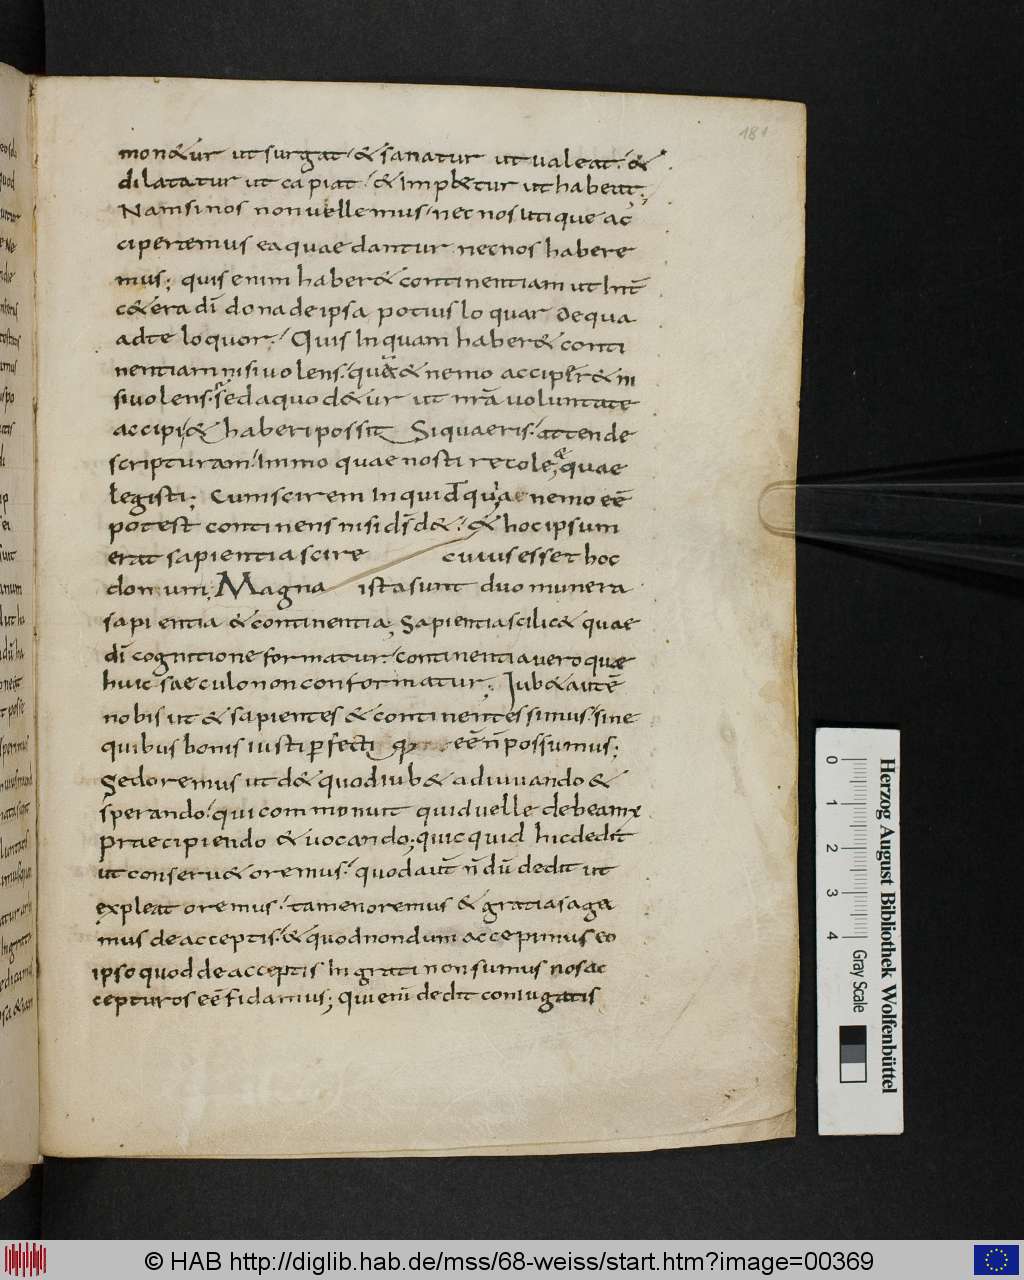 181
mon&ur ut surgat · & sanatur ut ualeat · &
dilatatur ut capiat · & impl&ur ut habeat;
Nam si nos non uellemus · nec nos utique ac
ciperemus ea quae dantur nec nos habere
mus; quis enim haber& continentiam ut int̄
c&era dī dona de ipsa potius loquar de qua
ad te loquor · Quis inquam haber& conti
nentiam nisi uolens · quia & nemo acciper& ni
si uolens · sed a quo d&ur ut nr̄a uoluntate
accipi & haberi possit Si quaeris · attende
scripturam · Immo quae nosti recole, quae
legisti; Cum scirem inquid quia nemo eē
potest continens nisi d̄s d& · & hoc ipsum
erat sapientia scire cuius esset hoc
donum; Magna ista sunt duo munera
sapientia & continentia, Sapientia scilic& quae
dī cognitione formatur · continentia uero quae
huic saeculo non conformatur; Iub& autē
nobis ut & sapientes & continentes simus · sine
quibus bonis iusti ꝑfecti eē n̄ possumus;
Sed oremus ut d& quod iub& adiuuando &
sperando · qui commonuit quid uelle debeam;
praecipiendo & uocando; quicquid hic dedit
ut conseru& oremus · quod aut̄ n̄ dū dedit ut
expleat oremus · tamen oremus & gratias aga
mus de acceptis · & quod nondum accepimus eo
ipso quod de acceptis ingrati non sumus nos ac
cepturos eē fidamus; Qui enī dedit coniugatis
0 1 2 3 4
Gray Scale
Herzog August Bibliothek Wolfenbüttel
© HAB http://diglib.hab.de/mss/68-weiss/start.htm?image=00369